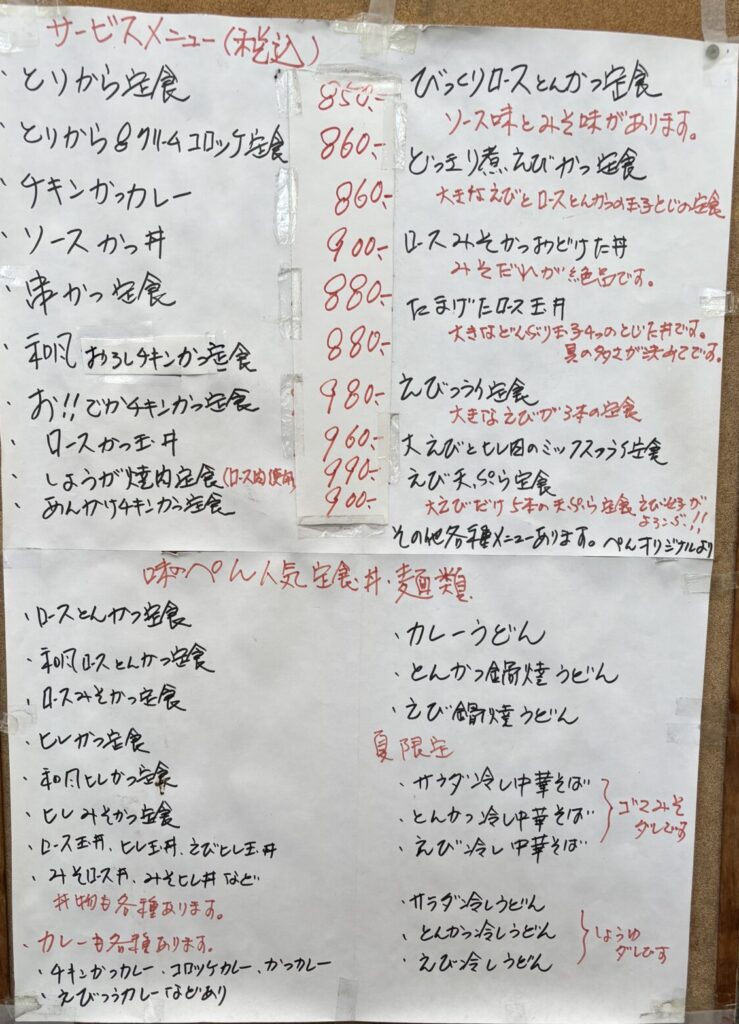 サービスメニュー(税込)
・とりから定食 850.-
・とりから&クリームコロッケ定食 860.-
・チキンかつカレー 860.-
・ソースかつ丼 900.-
・串かつ定食 880.-
・和風おろしチキンかつ定食 880.-
・お!!でかチキンかつ定食 980.-
・ロースかつ玉丼 960.-
・しょうが焼肉定食(ロース肉使用) 990.-
・あんかけチキンかつ定食 900.-
びっくりロースとんかつ定食
ソース味とみそ味があります。
どっきり煮えびかつ定食
大きなえびとロースとんかつの玉子とじの定食
ロースみそかつおどけた丼
みそだれが絶品です。
たまげたロース玉丼
大きなどんぶり玉子4つのとじた丼です。
具の多さが決めてです。
えびフライ定食
大きなえびが3本の定食
大えびとヒレ肉のミックスフライ定食
えび天ぷら定食
大えびだけ5本の天ぷら定食 えび好子が
よろこぶ!!
その他各種メニューあります。ぺんオリジナルより
味のぺん人気定食・丼・麺類
・ロースとんかつ定食
・和風ロースとんかつ定食
・ロースみそかつ定食
・ヒレかつ定食
・和風ヒレかつ定食
・ヒレみそかつ定食
・ロース玉丼、ヒレ玉丼、えびヒレ玉丼
・みそロース丼、みそヒレ丼など
丼物も各種あります。
・カレーも各種あります。
・チキンかつカレー、コロッケカレー、かつカレー
・えびフライカレーなどあり
・カレーうどん
・とんかつ鍋焼うどん
・えび鍋焼うどん
夏限定
・サラダ冷し中華そば
・とんかつ冷し中華そば
・えび冷し中華そば
ゴマみそ
ダレです
・サラダ冷しうどん
・とんかつ冷しうどん
・えび冷しうどん
しょうゆ
ダレです